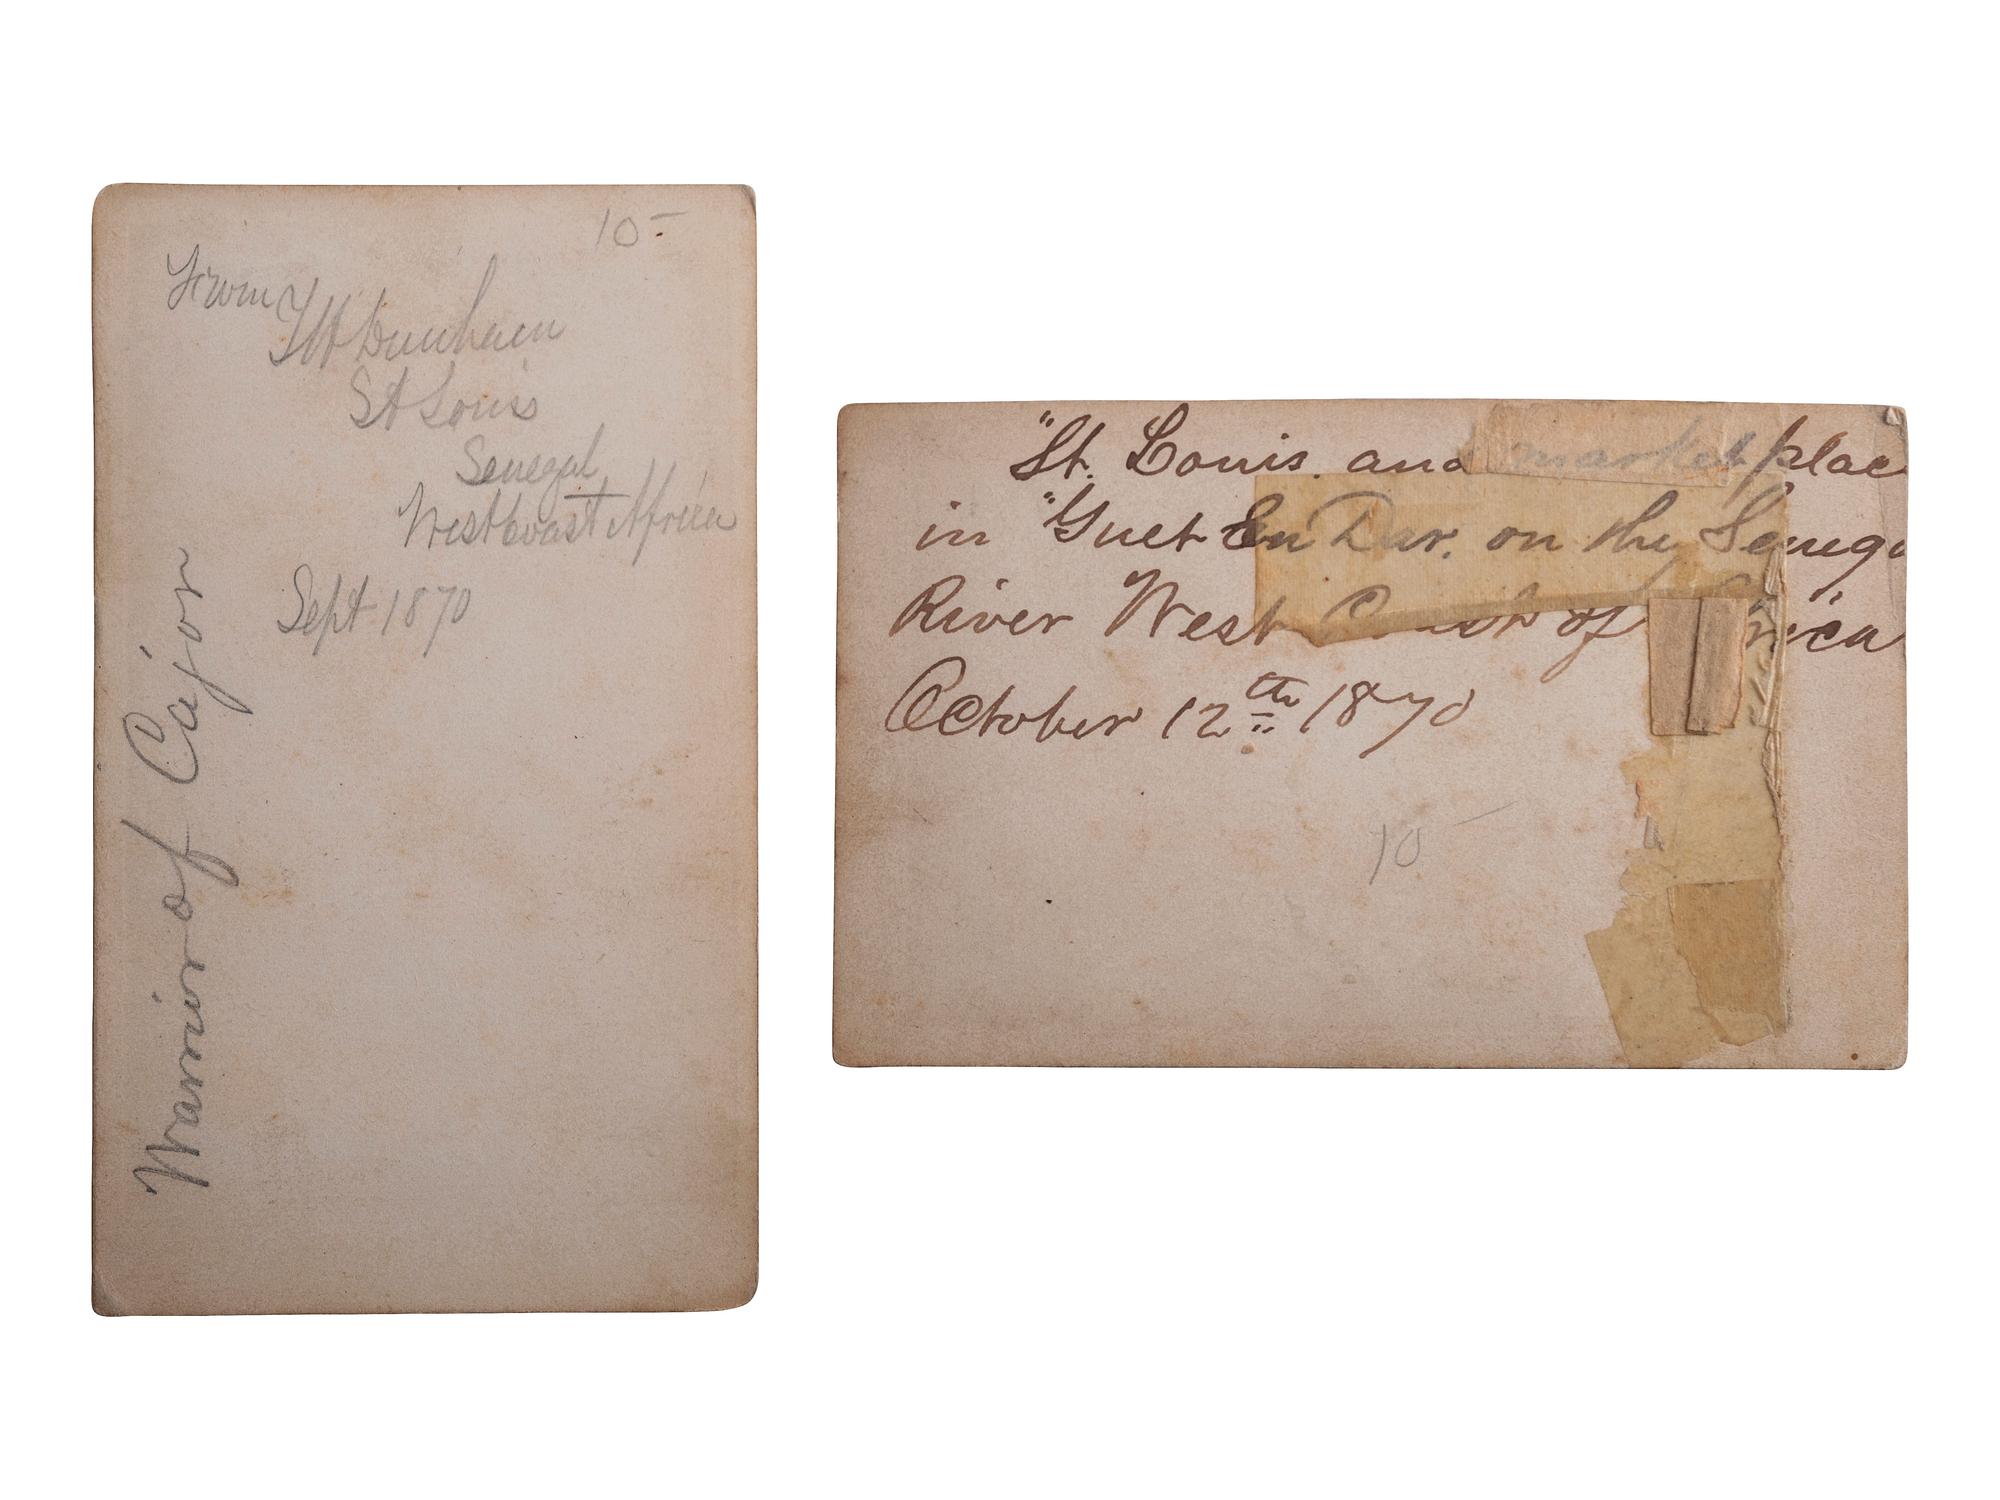 10-
From
Dunham
St Louis
Senegal
West Coast Africa
Sept 1870
Warrior of Cajor
"St. Louis and market place
in "Guet En Dar. on the Senega
River West Coast of Africa"
October 12th 1870
10-